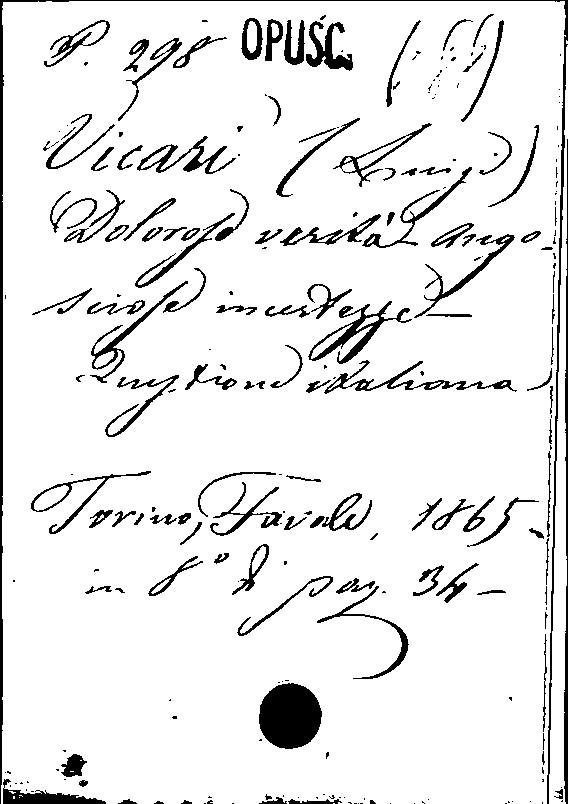 P. 298 OPUSC.
Vicari (Luigi)
Dolorose verità – Ango-
sciose incertezze –
Questione italiana
Torino, Favale, 1865.
in 8° di pag. 34 –